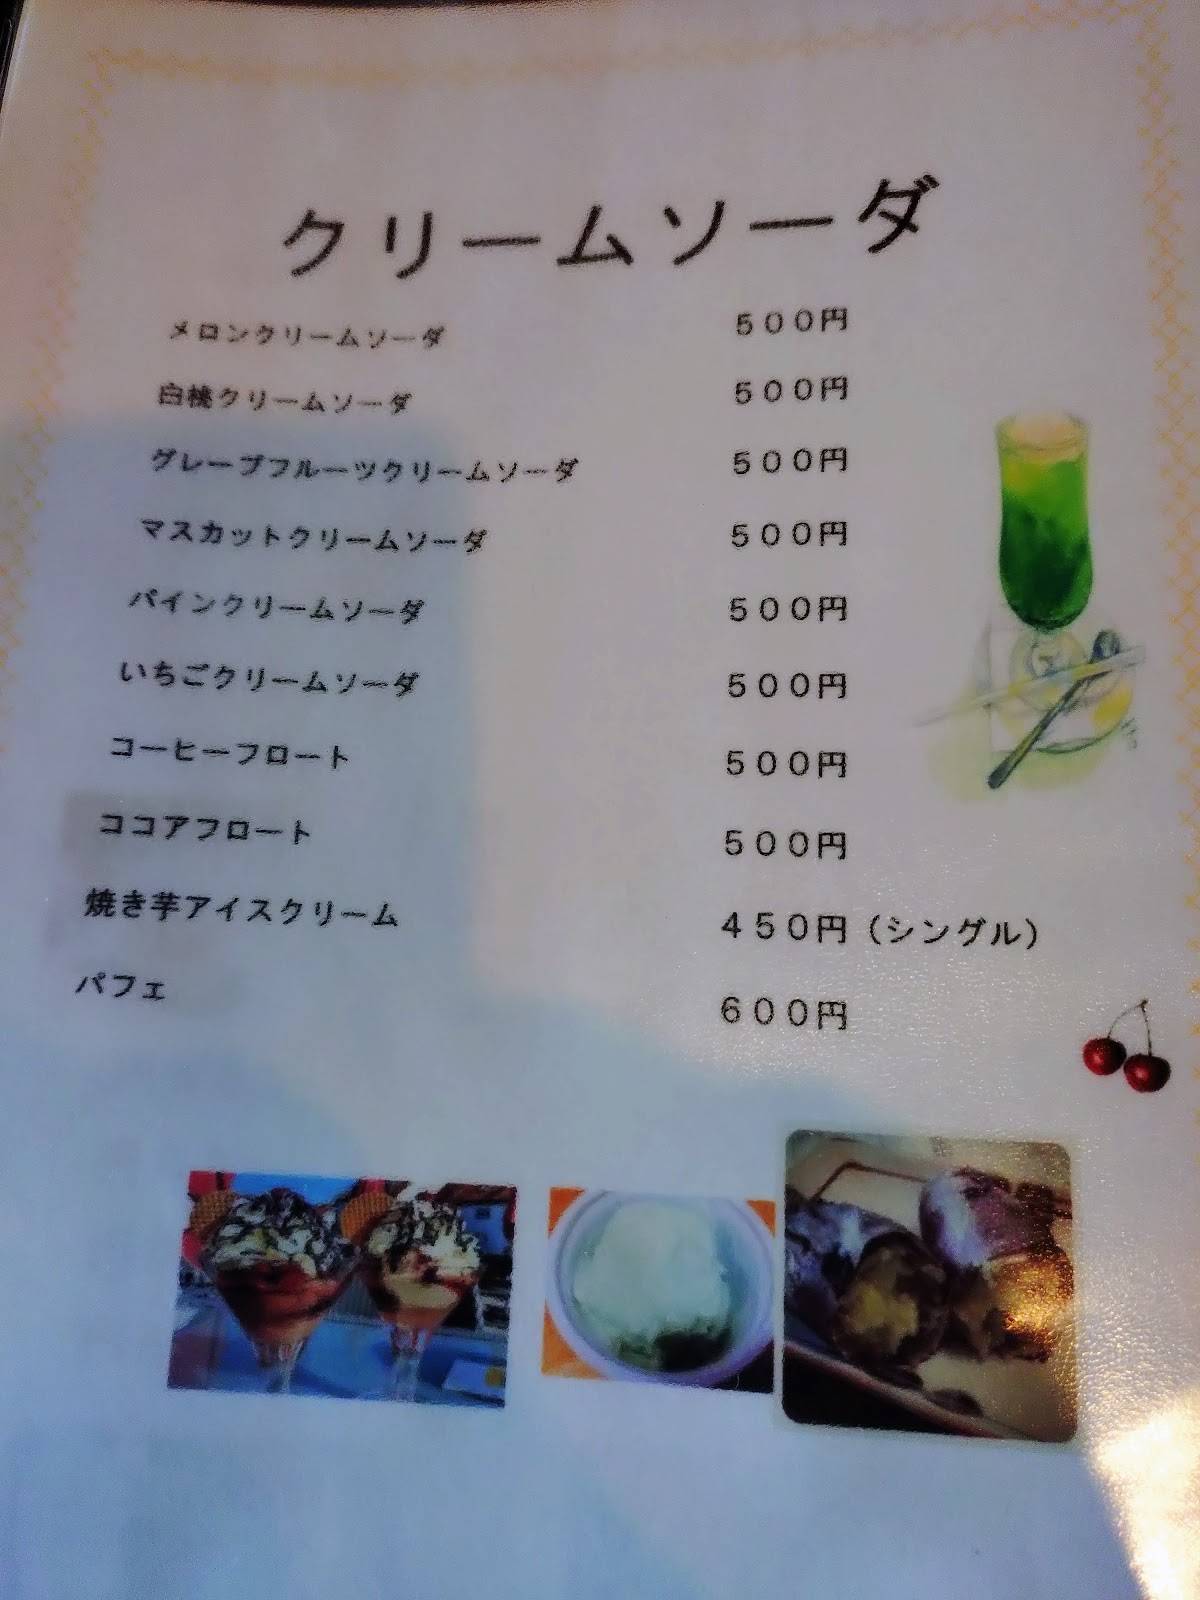 クリームソーダ
メロンクリームソーダ ５００円
白桃クリームソーダ ５００円
グレープフルーツクリームソーダ ５００円
マスカットクリームソーダ ５００円
パインクリームソーダ ５００円
いちごクリームソーダ ５００円
コーヒーフロート ５００円
ココアフロート ５００円
焼き芋アイスクリーム ４５０円（シングル）
パフェ ６００円